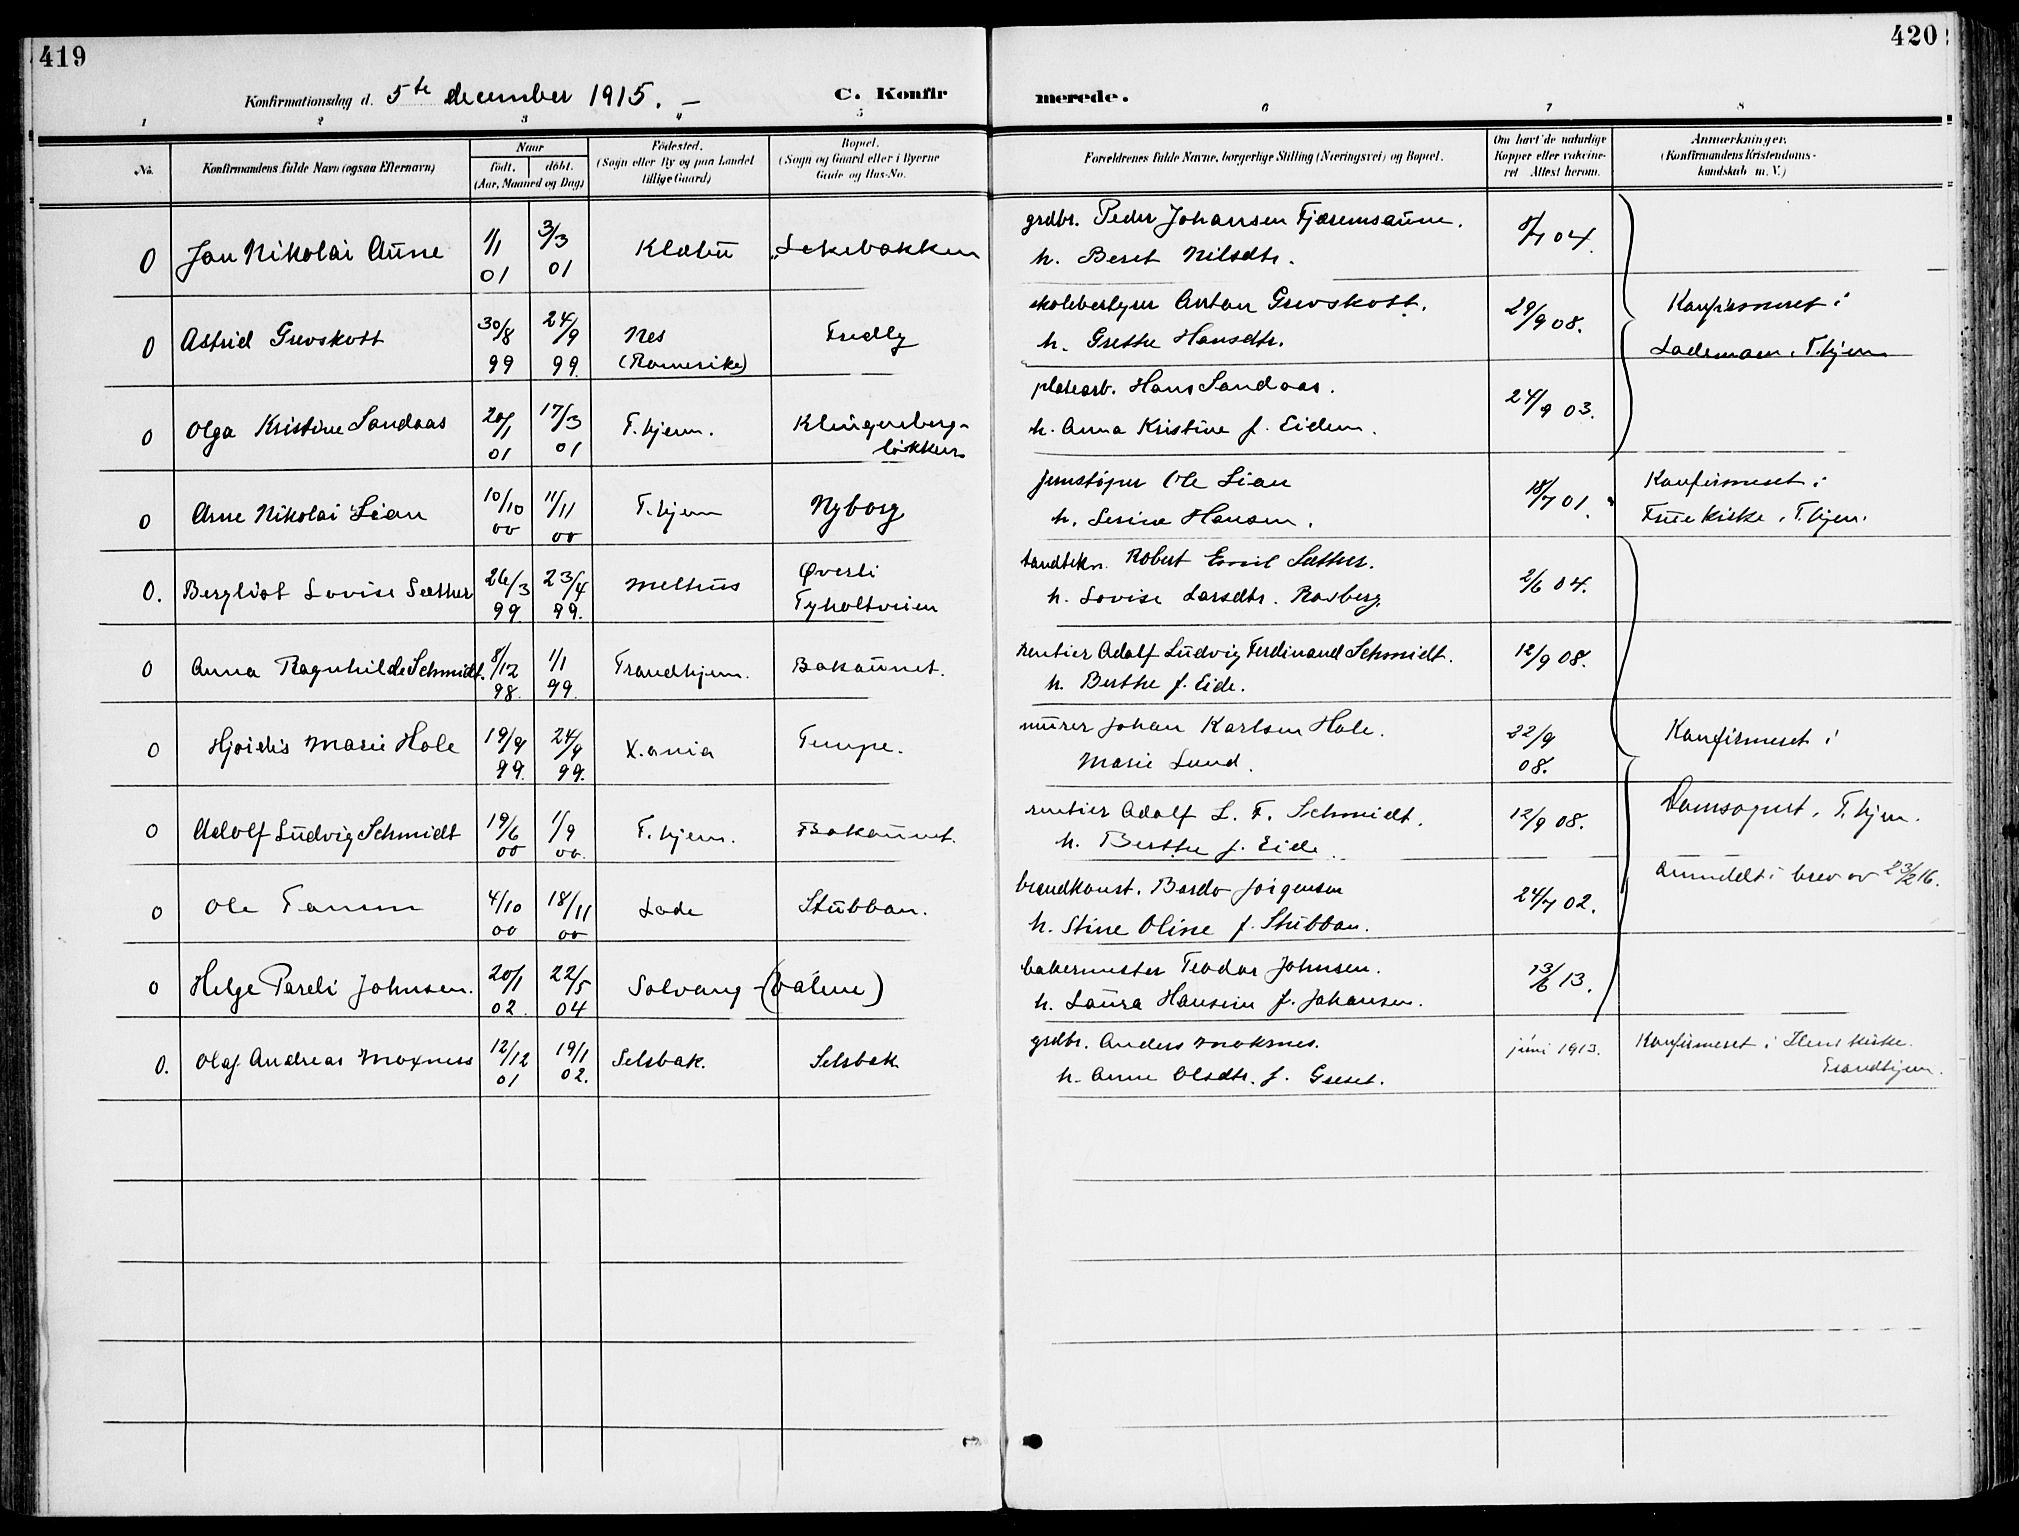 419
420
Konfirmationsdag d. 5te december 1915. –
C. Konfir
merede.
1 2 3 4 5 6 7 8
No.
Konfirmandens fulde Navn (ogsaa Efternavn)
Naar
født. døbt.
(Aar, Maaned og Dag)
Fødested.
(Sogn eller By og paa Landet
tillige Gaard)
Bopæl.
(Sogn og Gaard eller i Byerne
Gade og Hus-No.
Forældrenes fulde Navne, borgerlige Stilling (Næringsvei) og Bopæl.
Om havt de naturlige
Kopper eller vakcine-
ret Attest herom.
Anmærkninger.
(Konfirmandens Kristendoms-
kundskab m. V.)
0 Jon Nikolai Aune 1/1 01 3/3 01 Klæbu Lekebakken
grdbr. Peder Johansen Fjæremsaune.
h. Beret Nilsdtr. 04.
0 Astrid Grevskott 30/8 99 24/9 99. Nes (Romerike) Fredly
skolebestyrer Anton Grevskott. 29/9 08. Konfirmeret i
h. Grethe Hansdtr. Lademoen, T.hjem
0 Olga Kristine Sandaas 20/1 01 17/3 01 T.hjem. Klingenberg-
løkken
platearb. Hans Sandaas. 24/9 03.
h. Anna Kristine f. Eidem.
0 Arne Nikolai Lian 10/10 00 11/11 00 T.hjem Nyborg
jernstøper Ole Lian 18/7 01. Konfirmeret i
h. Serine Hansen. Frue Kirke, T.hjem.
0. Bergliot Lovise Sæther 26/3 99. 23/4 99. Melhus Øverli
Tyholtveien
tandtekn. Robert Emil Sæther. 2/6 04.
h. Lovise Larsdtr. Rosberg.
0 Anna Ragnhilde Schmidt. 8/12 98. 1/1 99. Trondhjem. Bakaunet.
rentier Adolf Ludvig Ferdinand Schmidt. 12/9 08.
h. Berthe f. Eide.
0 Hjørdis Marie Hole 19/9 99. 24/9 99. X.ania Tempe.
murer Johan Karlsen Hole. 22/9 08. Konfirmeret i
Marie Lund.
0 Adolf Ludvig Schmidt 19/6 00 1/9 00. T.hjem. Bakaunet.
rentier Adolf L. F. Schmidt. 12/9 08. Domsognet, T.hjem.
h. Berthe f. Eide.
0 Ole Fansen 4/10 00 18/11 00 Lade Stubban.
brandkonst. Bardo Jørgensen 24/7 02. anmeldt i brev av 23/2 16.
h. Stine Oline f. Stubban.
0 Helge Pareli Johnsen. 20/1 02. 22/5 04 Solvang – (Bålene)
bakermester Teodor Johnsen. 13/6 13.
h. Laura Hansine f. Johansen.
0. Olaf Andreas Moxness 12/12 01 19/1 02. Selsbak. Selsbak
grdbr. Anders Moksnes. juni 1913. Konfirmeret i Ilens kirke.
h. Anne Olsdtr. f. Greset. Trondhjem.